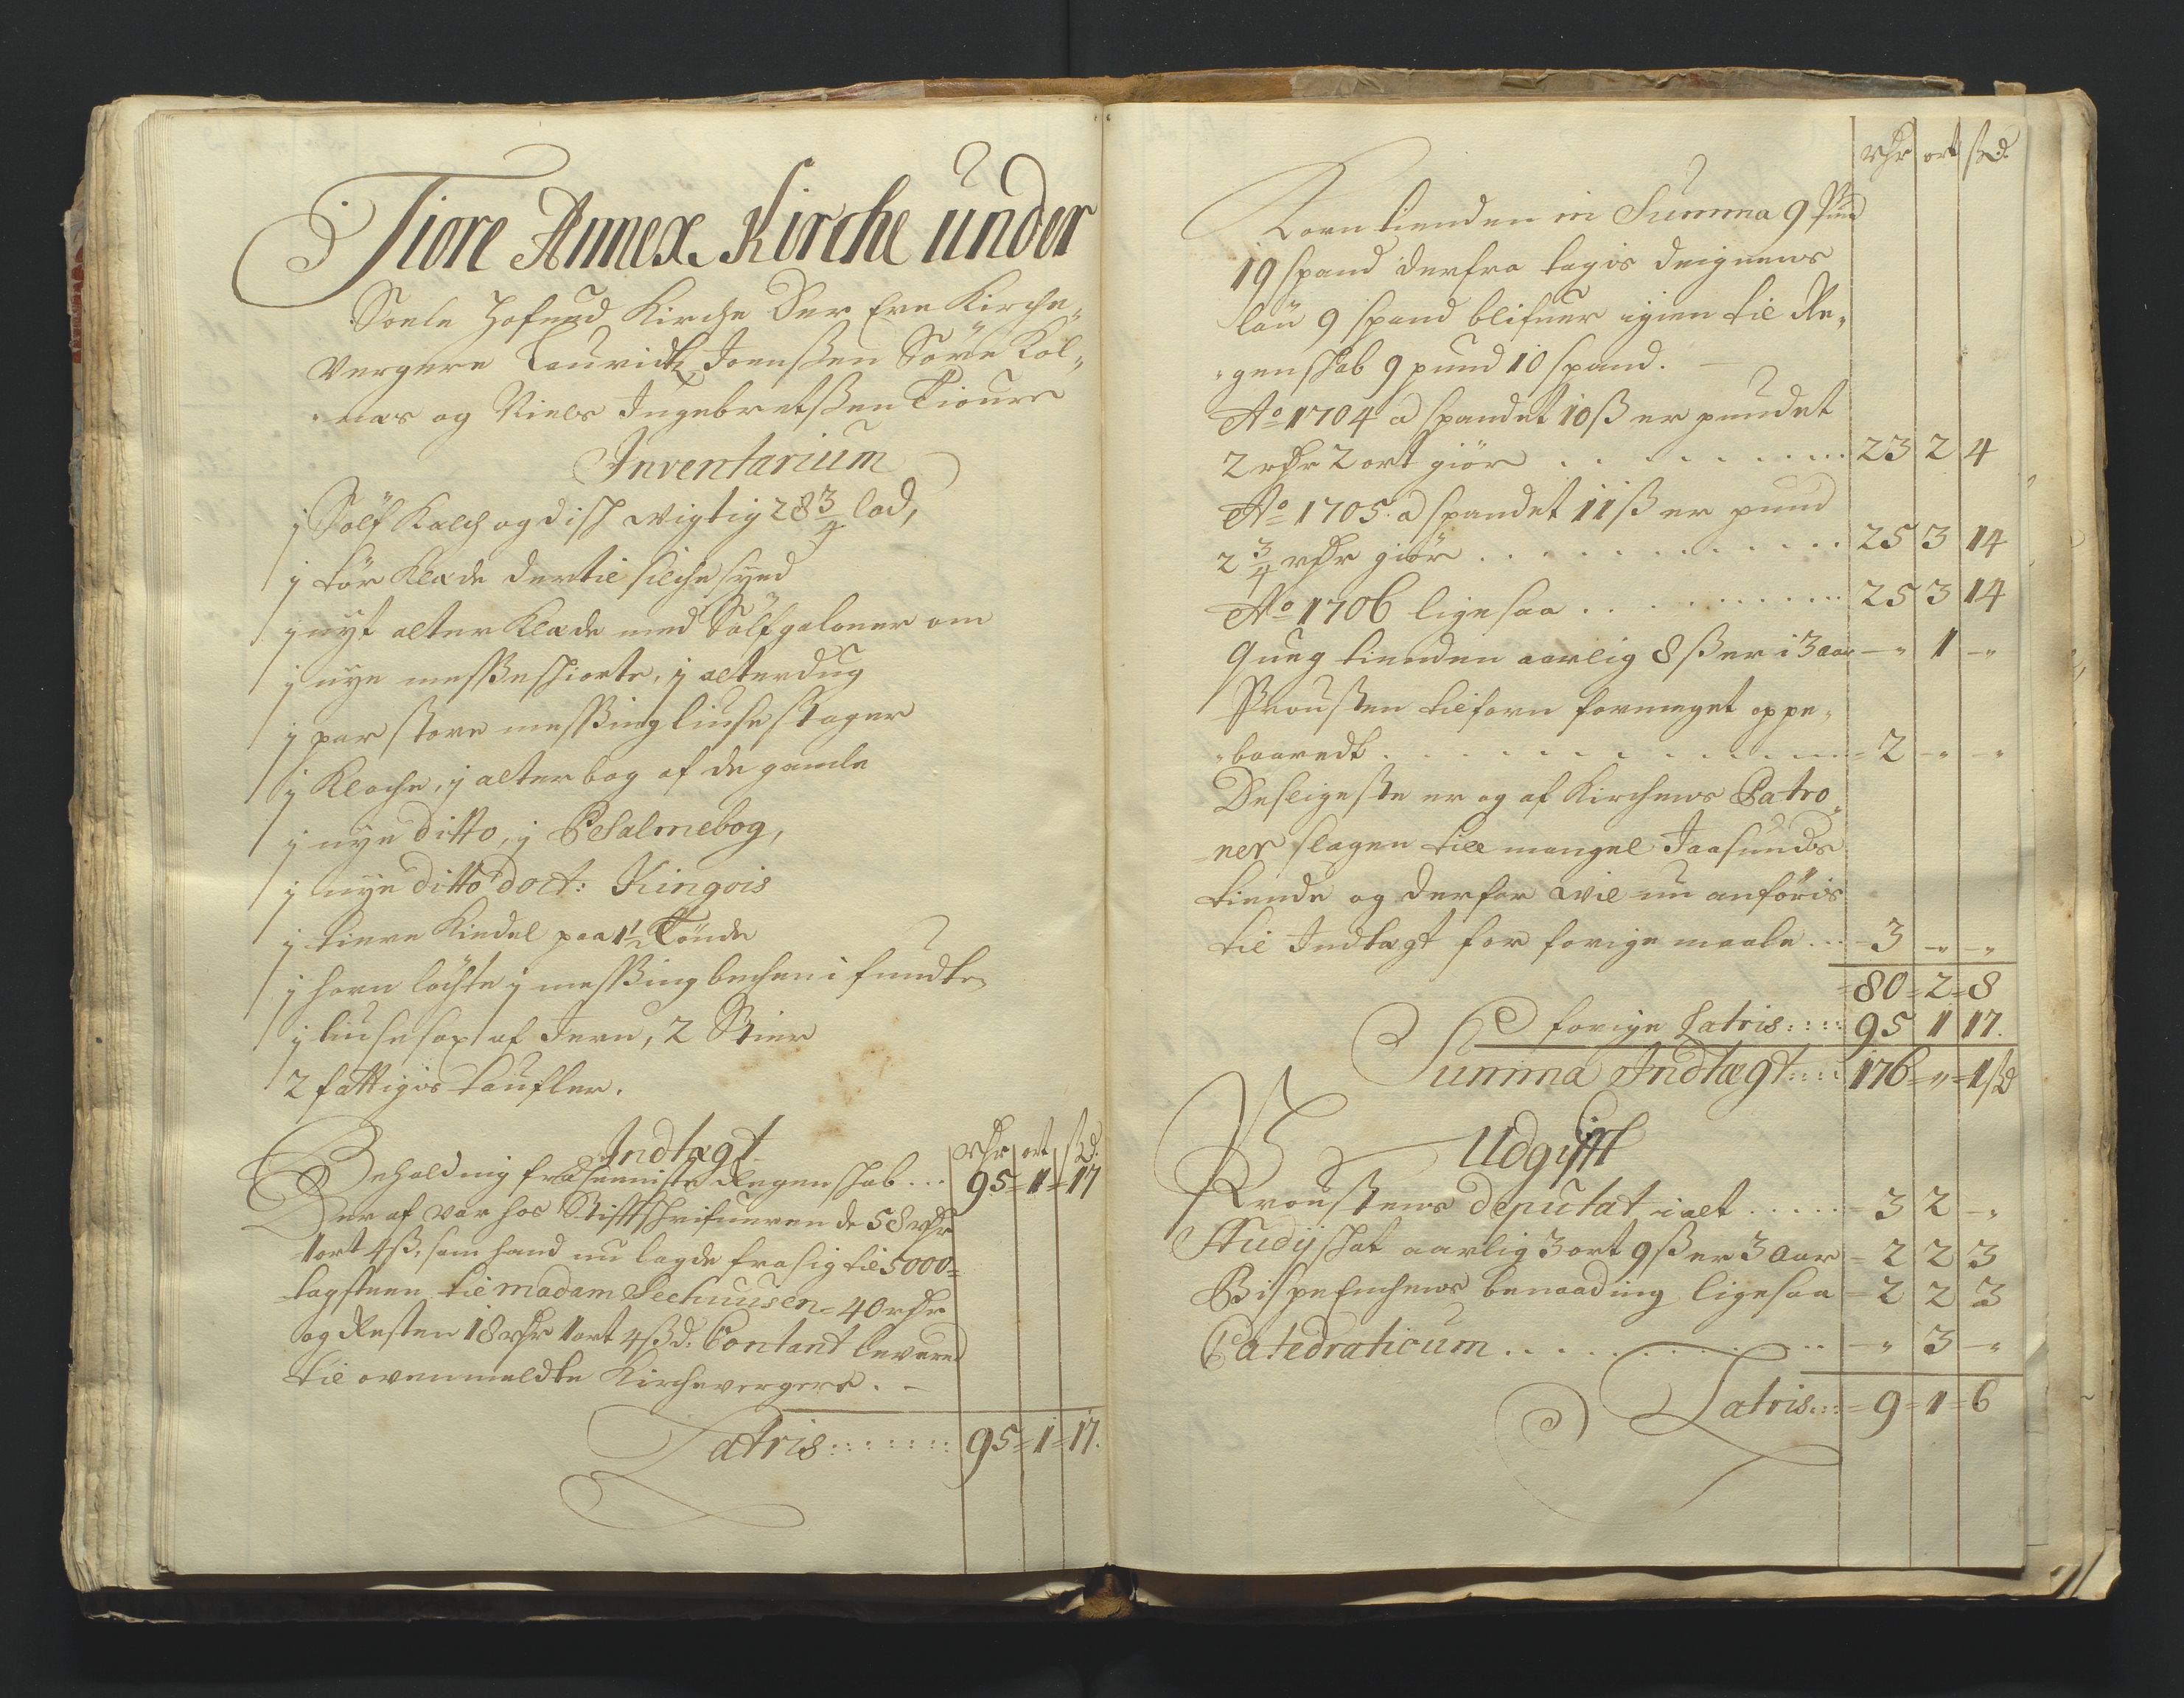 Tiore Annex. Kirche under
Soele Hofued Kirche Der Ere Kirche„
Vergere Lauridtz Joenssen Sörekol„
„næs og Niels Ingebretssen Tioure
Inventarium
j Sölf Kalch og disch wigtig 28 3/4 lod,
j tör klæde dertil silche syed
j nyt alter klæde med Sölfgaloner om
j nye messeschiorte, j alterdug
j par store messing liuse stager
j Kloche, j alterbog af de gamle
j nye ditto, j Psalmebog,
j nye ditto doct: Kingois
j tiere Kiedel paa 1 1/2 Tönde
j horn löchte j messing bechen i fundten
j liuse sax af Jern, 2 Stier
2 fattigis taufler.
Indtægt
rdr ort sk
Beholdning fra seeniste Regenschab ... 95=1=17
Der af var hos Stiftschrifueren de 58 rdr
1 ort 4 ß, som hand nu lagde fra sig til 5000=
tagsteen til madam Sechuusen = 40 rdr
og Resten 18 rdr 1 ort 4 ßd. Contant levered
til ovenmeldte Kirchevergere. –
Latris :::::::: 95=1=17.
rdr ort sk
Korn tienden in Summa 9 Pund
19 spand derfra tagis deignens
lön 9 spand blifuer igien til Re„
„genschab 9 pund 10 spand. –
Ao 1704 a spandet 10 ß er pundet
2 rdr 2 ort giör . . . . . . . . . . 23 2 4
Ao 1705. a spandet 11 ß er pund
2 3/4 rdr giör . . . . . . . . . . . 25 3 14
Ao 1706 ligesaa . . . . . . . . . . 25 3 14
Queg tienden aarlig 8 ß er i 3 aar –„ 1 –„
Prousten tilforn formeget oppe„
„baaredt . . . . . . . . . . . . . = 2 –„ –„
Desligeste er og af Kirchens Patro„
„ner slagen till mangel Jaasunds
tiende og derfor wil nu anföris
til Indtægt for forige maale ... – 3 –„ –„
=80=2=8
forige Latris :::: 95 1 17.
Summa Indtægt :::: 176=„=1 sk
Udgifft
Proustens deputat i alt ..... = 3 2 –„
Studij schat aarlig 3 ort 9 ß er 3 aar = 2 2 3
Bispe Enchens benaading ligesaa = 2 2 3
Catedraticum . . . . . . . . . . –„ 3 –„
Latris ::: = 9=1=6